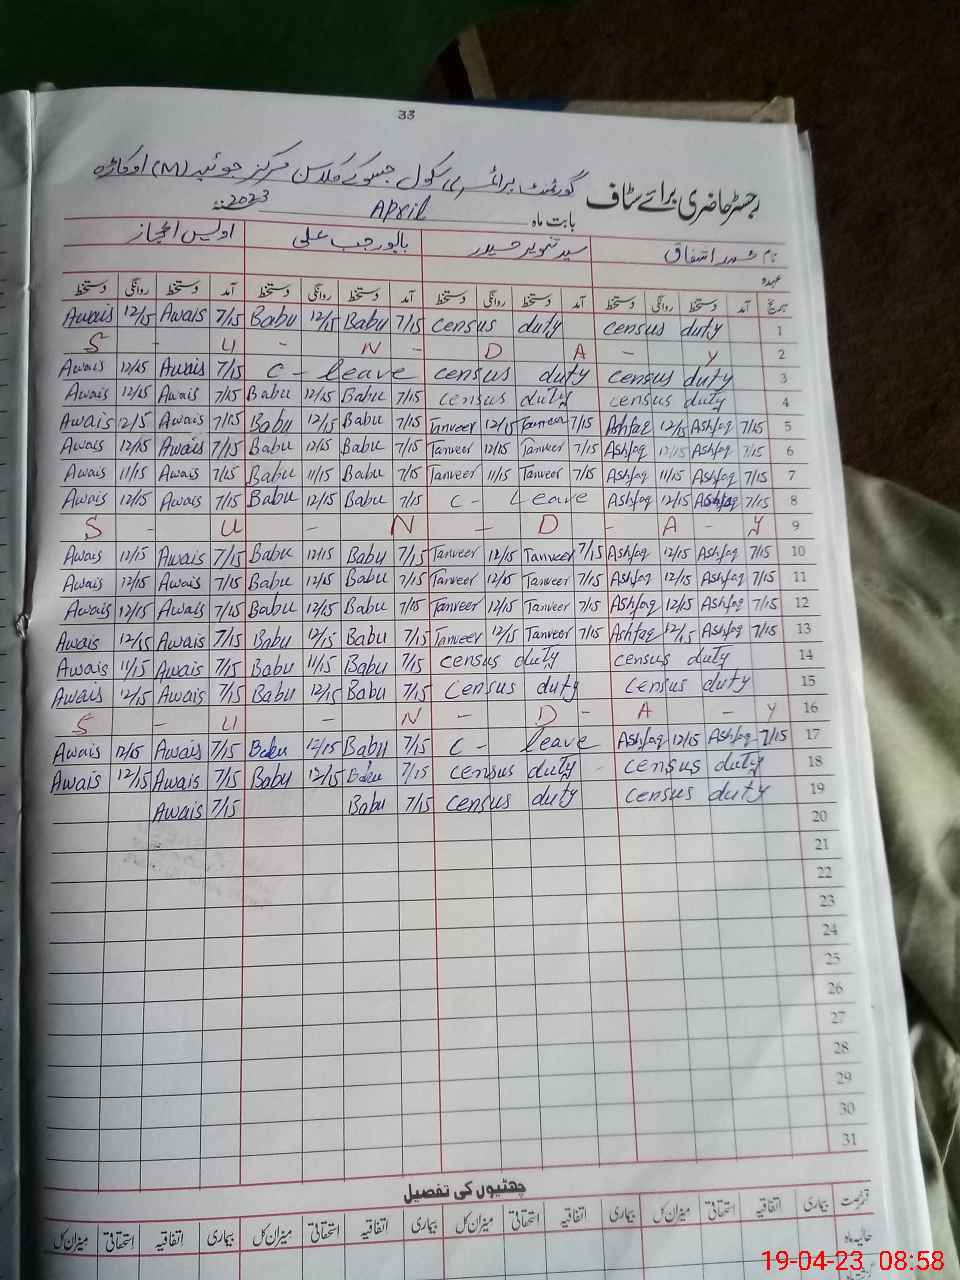 33
رجسٹر حاضری برائے سٹاف گورنمنٹ پرائمری سکول جسوکے کلاسن مرکز جوئیہ (M) اوکاڑہ
بابت ماہ April 2023ء
نام اشفاق سید تنویر حیدر بابو رجب علی اویس اعجاز
عہدہ
تاریخ آمد دستخط روانگی دستخط آمد دستخط روانگی دستخط آمد دستخط روانگی دستخط آمد دستخط روانگی دستخط
Awais 12/15 Awais 7/15 Babu 12/15 Babu 7/15 census duty census duty 1
S - U - N - D A - Y 2
Awais 12/15 Awais 7/15 C - leave census duty census duty 3
Awais 12/15 Awais 7/15 Babu 12/15 Babu 7/15 census duty census duty 4
Awais 12/15 Awais 7/15 Babu 12/15 Babu 7/15 Tanveer 12/15 Tanveer 7/15 Ashfaq 12/15 Ashfaq 7/15 5
Awais 12/15 Awais 7/15 Babu 12/15 Babu 7/15 Tanveer 12/15 Tanveer 7/15 Ashfaq 12/15 Ashfaq 7/15 6
Awais 11/15 Awais 7/15 Babu 11/15 Babu 7/15 Tanveer 11/15 Tanveer 7/15 Ashfaq 11/15 Ashfaq 7/15 7
Awais 12/15 Awais 7/15 Babu 12/15 Babu 7/15 C - Leave Ashfaq 12/15 Ashfaq 7/15 8
S - U - N - D - A - Y 9
Awais 12/15 Awais 7/15 Babu 12/15 Babu 7/15 Tanveer 12/15 Tanveer 7/15 Ashfaq 12/15 Ashfaq 7/15 10
Awais 12/15 Awais 7/15 Babu 12/15 Babu 7/15 Tanveer 12/15 Tanveer 7/15 Ashfaq 12/15 Ashfaq 7/15 11
Awais 12/15 Awais 7/15 Babu 12/15 Babu 7/15 Tanveer 12/15 Tanveer 7/15 Ashfaq 12/15 Ashfaq 7/15 12
Awais 12/15 Awais 7/15 Babu 12/15 Babu 7/15 Tanveer 12/15 Tanveer 7/15 Ashfaq 12/15 Ashfaq 7/15 13
Awais 11/15 Awais 7/15 Babu 11/15 Babu 7/15 census duty census duty 14
Awais 12/15 Awais 7/15 Babu 12/15 Babu 7/15 Census duty Census duty 15
S - U - N - D - A - Y 16
Awais 12/15 Awais 7/15 Babu 12/15 Babu 7/15 C - leave Ashfaq 12/15 Ashfaq 7/15 17
Awais 12/15 Awais 7/15 Babu 12/15 Babu 7/15 census duty - census duty 18
Awais 7/15 Babu 7/15 census duty census duty 19
20
21
22
23
24
25
26
27
28
29
30
31
چھٹیوں کی تفصیل
قسم رخصت بیماری اتفاقیہ استحقاقی میزان کل بیماری اتفاقیہ استحقاقی میزان کل بیماری اتفاقیہ استحقاقی میزان کل بیماری اتفاقیہ استحقاقی میزان کل
حالیہ ماہ
19-04-23 08:58